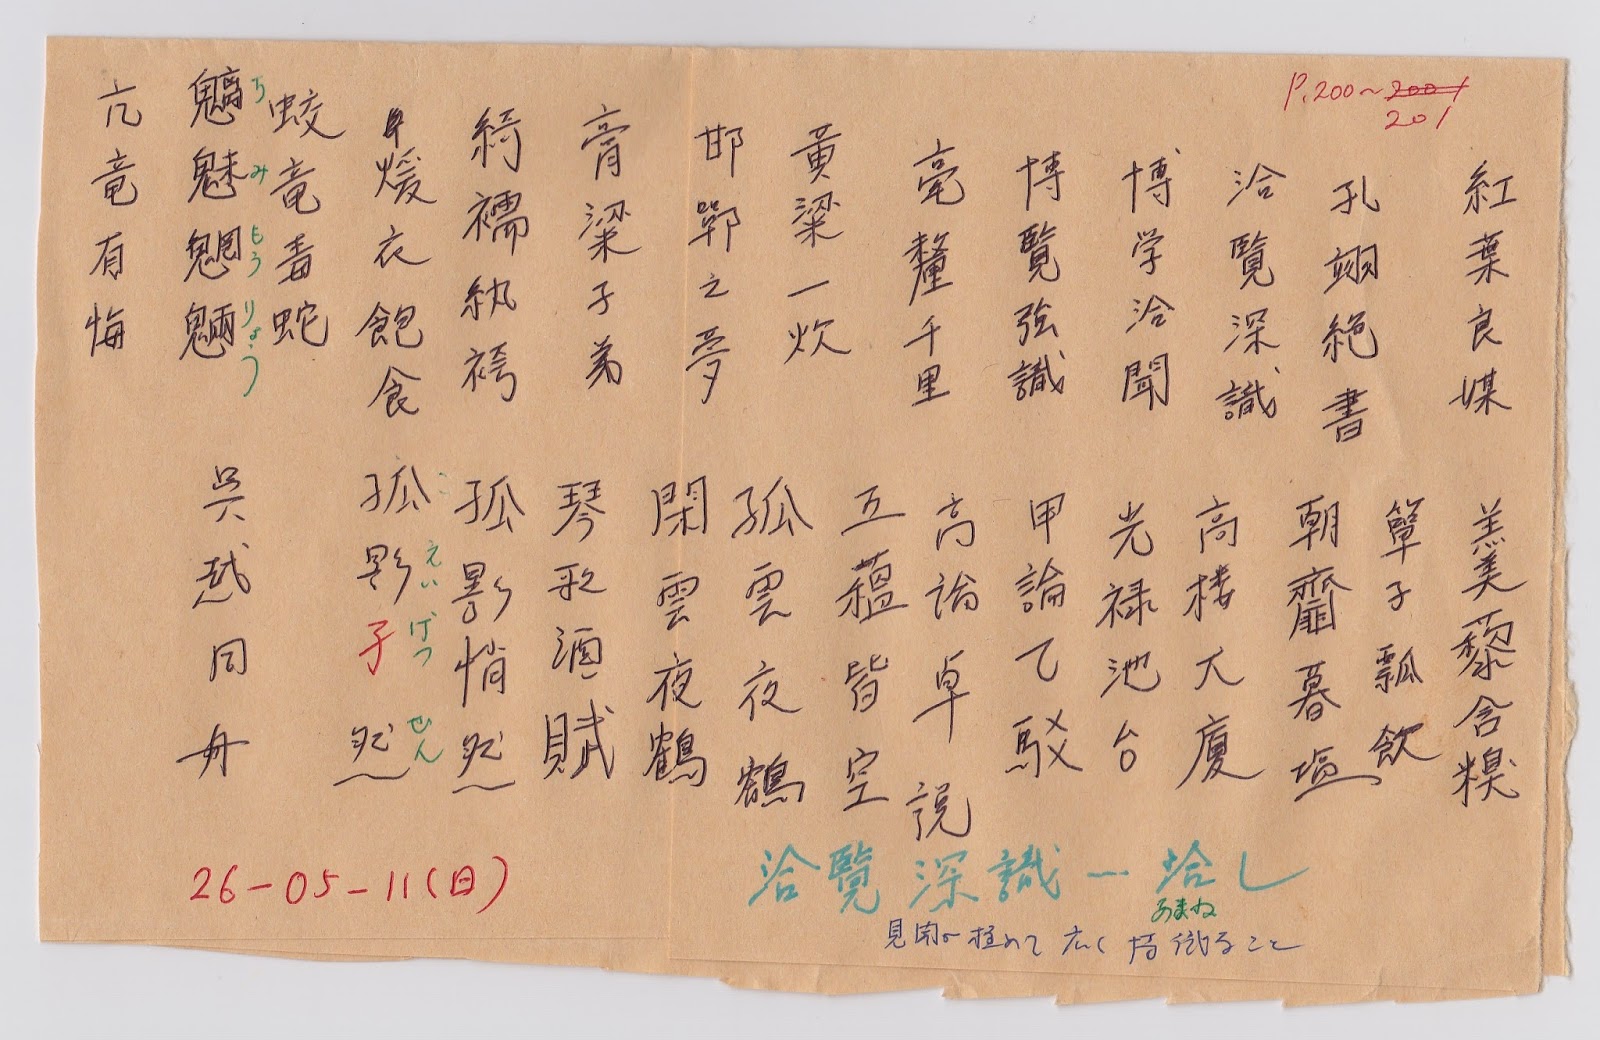 P.200～2001
201
紅葉良媒
孔翊絶書
洽覧深識
博学洽聞
博覧強識
毫釐千里
黄粱一炊
邯鄲之夢
膏粱子弟
綺襦紈袴
煖衣飽食
蛟竜毒蛇
魑魅魍魎
ち み もう りょう
亢竜有悔
羹藜含糗
簞子瓢飲
朝齏暮塩
高楼大廈
光禄池台
甲論乙駁
高論卓説
五蘊皆空
孤雲夜鶴
閑雲夜鶴
琴歌酒賦
孤影悄然
孤影孑然
こ えい げつ せん
呉越同舟
洽覧深識ー洽し
あまね
見聞が極めて広く 識ること
26-05-11(日)